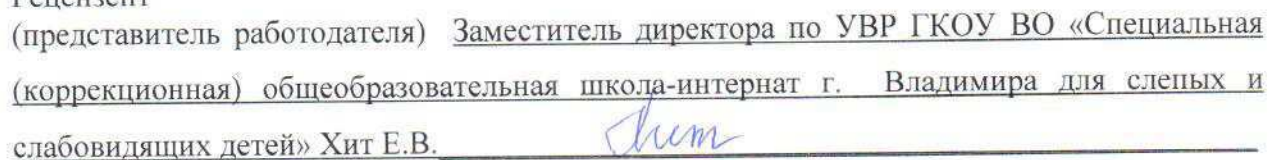 Рецензент
(представитель работодателя) Заместитель директора по УВР ГКОУ ВО «Специальная
(коррекционная) общеобразовательная школа-интернат г. Владимира для слепых и
слабовидящих детей» Хит Е.В. Хит